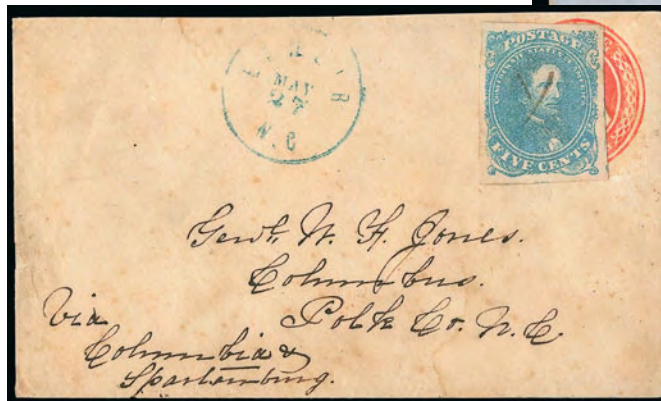 MAY
27
N.C
POSTAGE
CONFEDERATE STATES OF AMERICA
FIVE CENTS
Genl. W. F. Jones.
Columbus.
Polk Co. N.C
Via
Columbia &
Spartanburg.